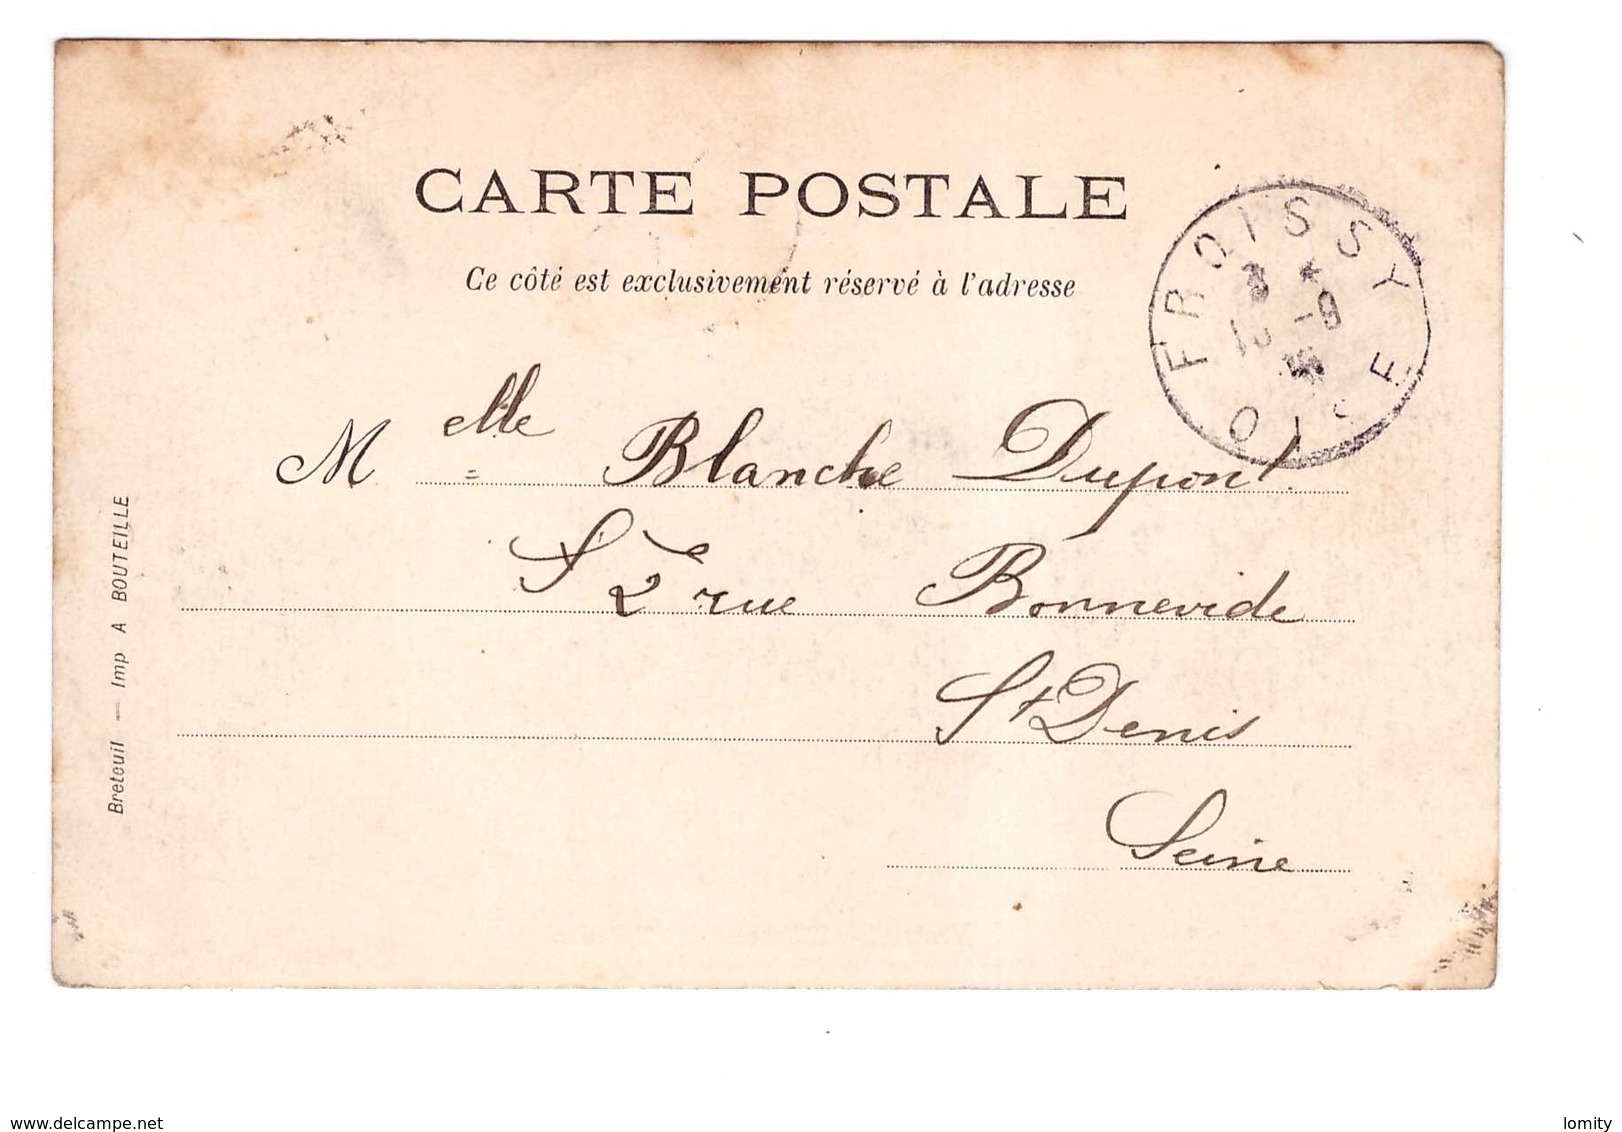 CARTE POSTALE
Ce côté est exclusivement réservé à l'adresse
FROISSY
OISE
Melle Blanche Dupont
rue Bonnevide
St Denis
Seine
Breteuil — Imp A BOUTEILLE
www.delcampe.net
lomity